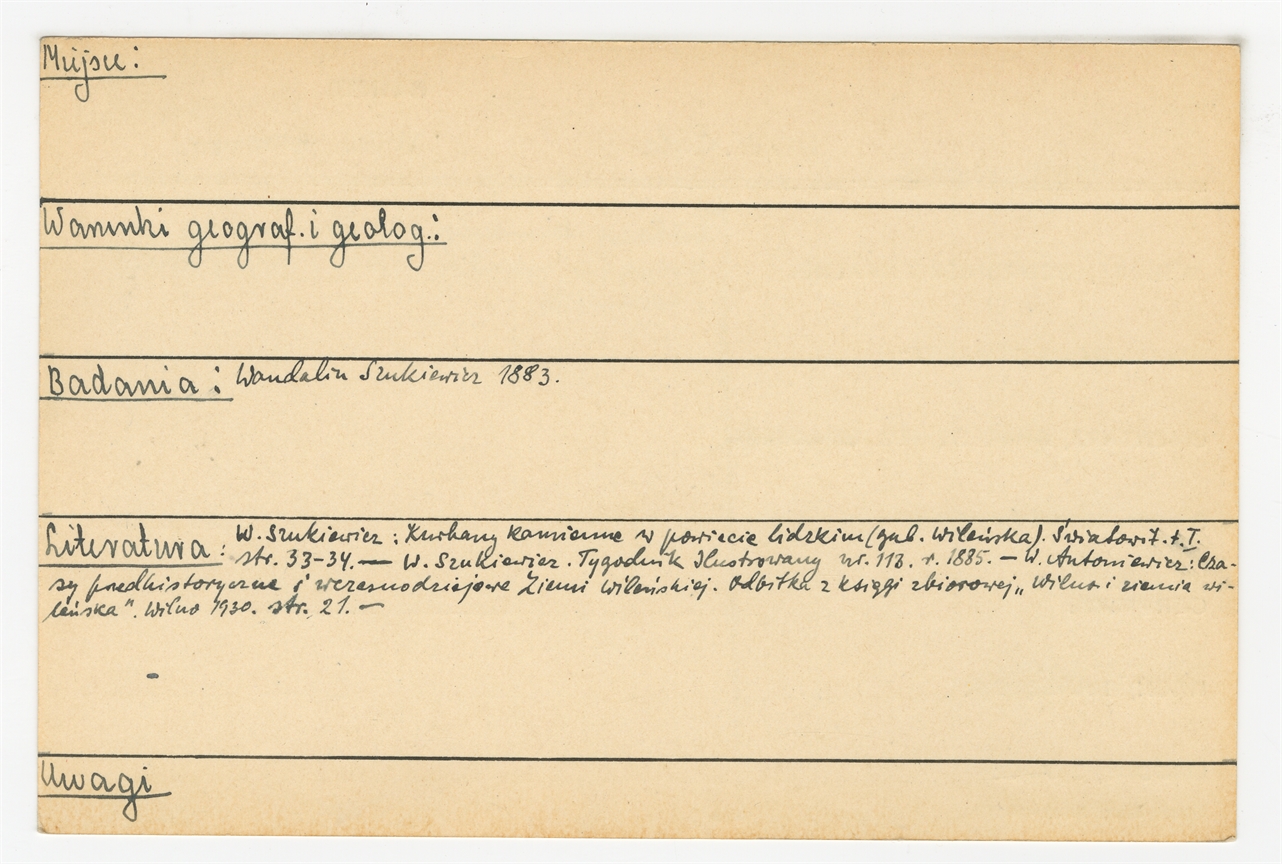 Miejsce:
Warunki geograf. i geolog.:
Badania: Wandalin Szukiewicz 1883.
Literatura: W. Szukiewicz: Kurhany kamienne w powiecie lidzkim (gub. Wileńska). Światowit. t. I.
str. 33-34. — W. Szukiewicz. Tygodnik Ilustrowany nr. 113. r. 1885. — W. Antoniewicz: Cza-
sy przedhistoryczne i wczesnodziejowe Ziemi Wileńskiej. Odbitka z księgi zbiorowej „Wilno i ziemia wi-
leńska". Wilno 1930. str. 21. —
Uwagi